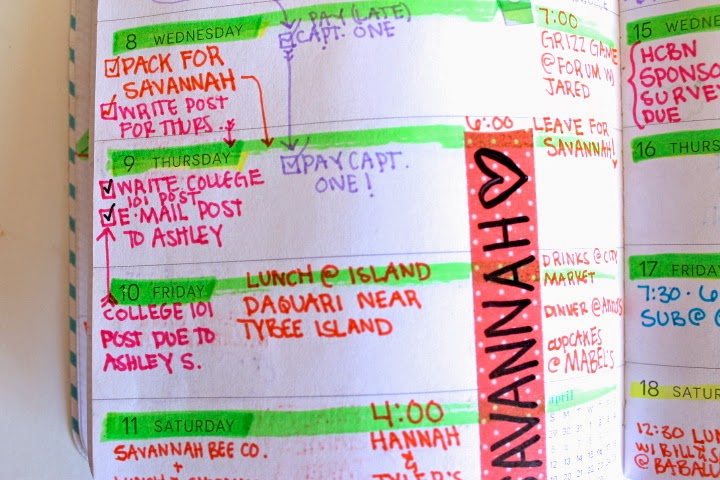 8 WEDNESDAY
PACK FOR
SAVANNAH
WRITE POST
FOR THURS.
PAY (LATE)
CAPT. ONE
7:00
GRIZZ GAME
@ FORUM W/
JARED
9 THURSDAY
WRITE COLLEGE
101 POST
E-MAIL POST
TO ASHLEY
PAY CAPT.
ONE!
6:00
LEAVE FOR
SAVANNAH!
SAVANNAH
10 FRIDAY
COLLEGE 101
POST DUE TO
ASHLEY S.
LUNCH @ ISLAND
DAQUARI NEAR
TYBEE ISLAND
DRINKS @ CITY
MARKET
DINNER @
CUPCAKES
@ MABEL'S
11 SATURDAY
SAVANNAH BEE CO.
+
4:00
HANNAH
&
TYLER'S
april
15 WEDNES
HCBN
SPONSO
SURVEY
DUE
16 THURS
17 FRIDAY
7:30 - 6
SUB @
18 SATU
12:30 LUN
W/ BILL &
@ BABALU